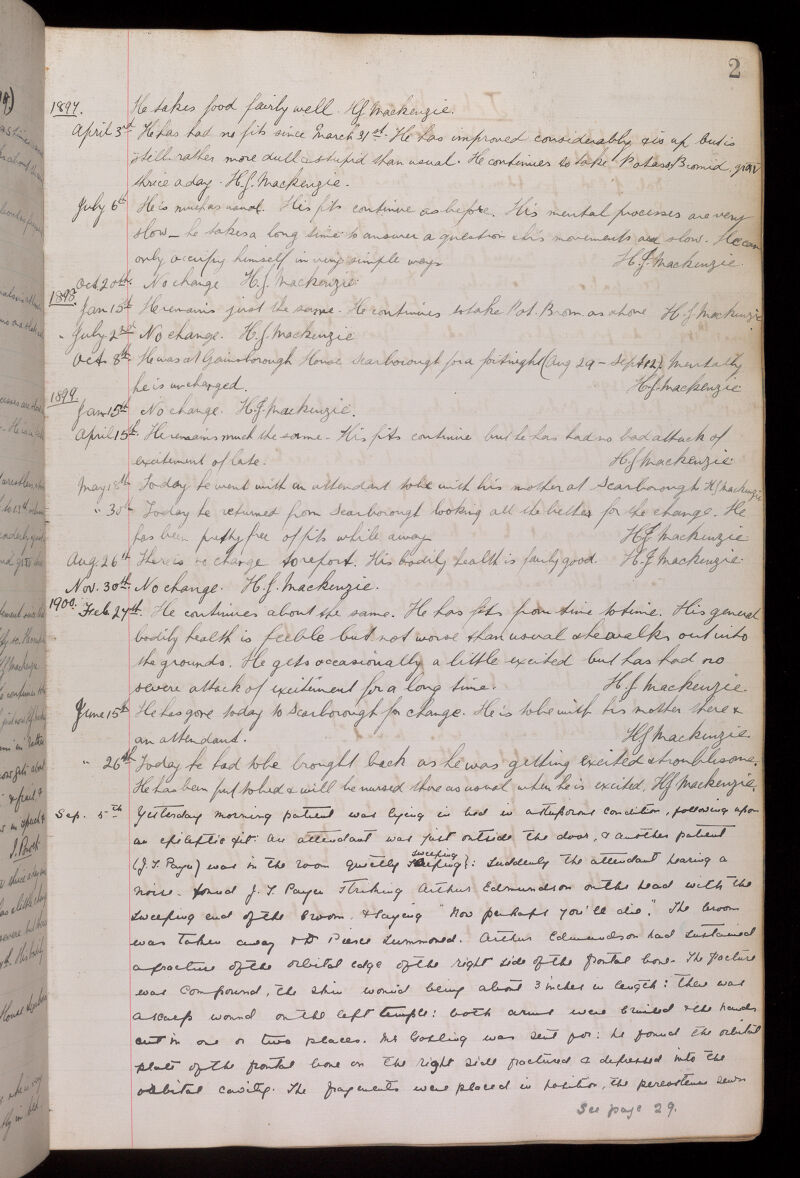 2
1897. He takes food fairly well. H.J. Mackenzie.
April 3rd He has had no fits since March 31st. He has improved considerably & is up but is
still rather more dull & stupid than usual. He continues to take Potass Bromid.
thrice a day. H.J. Mackenzie.
July 6th He is much as usual. His fits continue as before. His mental processes are very
slow – he takes a long time to answer a question & his movements are slow. He can
only occupy himself in very simple ways H.J. Mackenzie.
Oct 20th. No change H.J. Mackenzie.
1898.
Jan 15th He remains just the same. He continues to take Pot. Brom. as above H.J. Mackenzie
" July 2nd No change. H.J. Mackenzie
Oct 8th He was at Gainsborough House Scarborough for a fortnight (Aug 29 – Sept 12). Mentally
he is unchanged. H.J. Mackenzie
1899.
Jan 15th No change. H.J. Mackenzie.
April 15th. He remains much the same – His fits continue but he has had no bad attack of
excitement of late. H.J. Mackenzie
May 18th Today he went with an attendant to be with his mother at Scarborough H.J. Mackenzie
" 30th Today he returned from Scarborough looking all the better for the change. He
has been pretty free of fits while away H.J. Mackenzie
Aug. 26th There is no change to report. His bodily health is fairly good. H.J. Mackenzie
Nov. 30th. No change. H.J. Mackenzie.
1900. Feb. 27th. He continues about the same. He has fits from time to time. His general
bodily health is feeble but not worse than usual & he walks out into
the grounds. He gets occasionally a little excited but has had no
severe attack of excitement for a long time. H.J. Mackenzie.
June 15th He has gone today to Scarborough for change. He is to be with his mother there &
an attendant. H.J. Mackenzie.
" 26th Today he had to be brought back as he was getting excited & troublesome.
He has been put to bed & will be nursed there as usual when he is excited, H.J. Mackenzie.
Sep. 5th Yesterday morning patient was lying in bed in a stuporous condition, following upon
an epileptic fit: an attendant was just outside the door, & another patient
(J.T. Payer) was in the room quietly sweeping: suddenly the attendant hearing a
noise found J.T. Payer striking Arthur Edmundson on the head with the
sweeping end of the broom & saying "Now perhaps you'll die." The broom
was taken away & Dr Pierce summoned. Arthur Edmundson had sustained
a fracture of the orbital edge of the right side of the frontal bone. The fracture
was compound, the skin wound being about 3 inches in length: there was
a scalp wound on the left temple: both arms were bruised & the hands
cut in one or two places. Mr Gosling was sent for: he found the orbital
plate of the frontal bone on the right side fractured & depressed into the
orbital cavity. The fragments were placed in position, the periosteum sewn
See page 29.